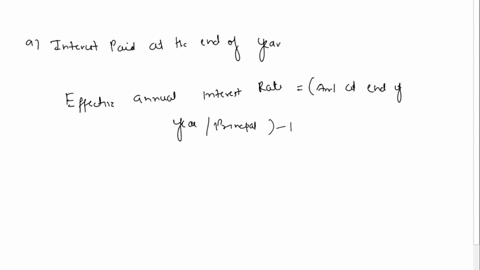 a) Interest Paid at the end of year
Effective annual interest Rate = (Amt at end of
year / Principal ) - 1